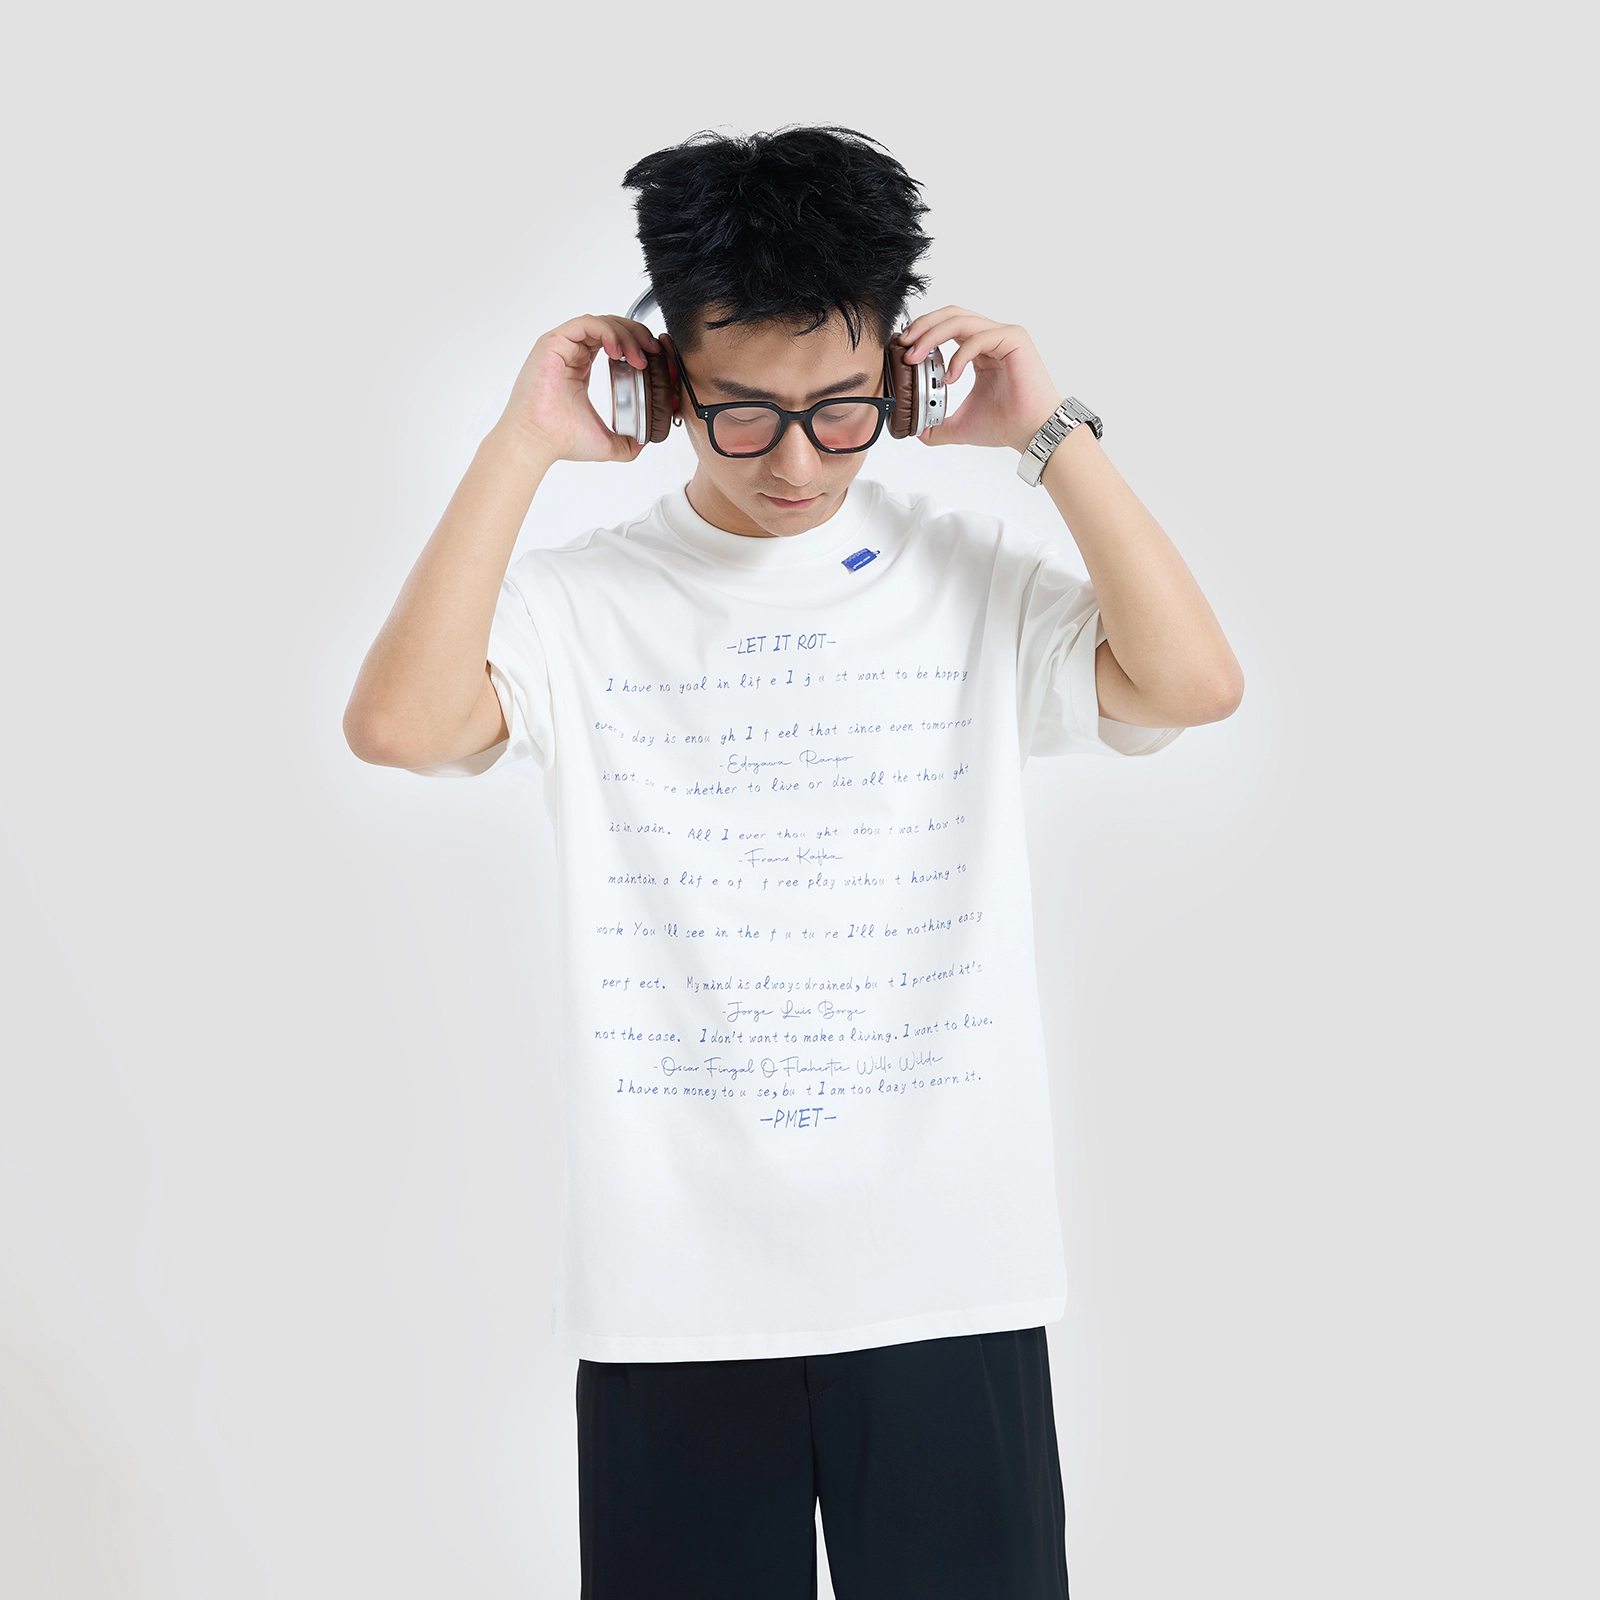 -LET IT ROT-
I have no goal in life I just want to be happy
every day is enough I feel that since even tomorrow
-Edogawa Ranpo
is not sure whether to live or die all the thought
is in vain. All I ever thought about was how to
-Franz Kafka
maintain a life of free play without having to
work You'll see in the future I'll be nothing easy
perfect. My mind is always drained, but I pretend it's
-Jorge Luis Borge
not the case. I don't want to make a living. I want to live.
-Oscar Fingal O Flahertie Wills Wilde
I have no money to use, but I am too lazy to earn it.
-PMET-